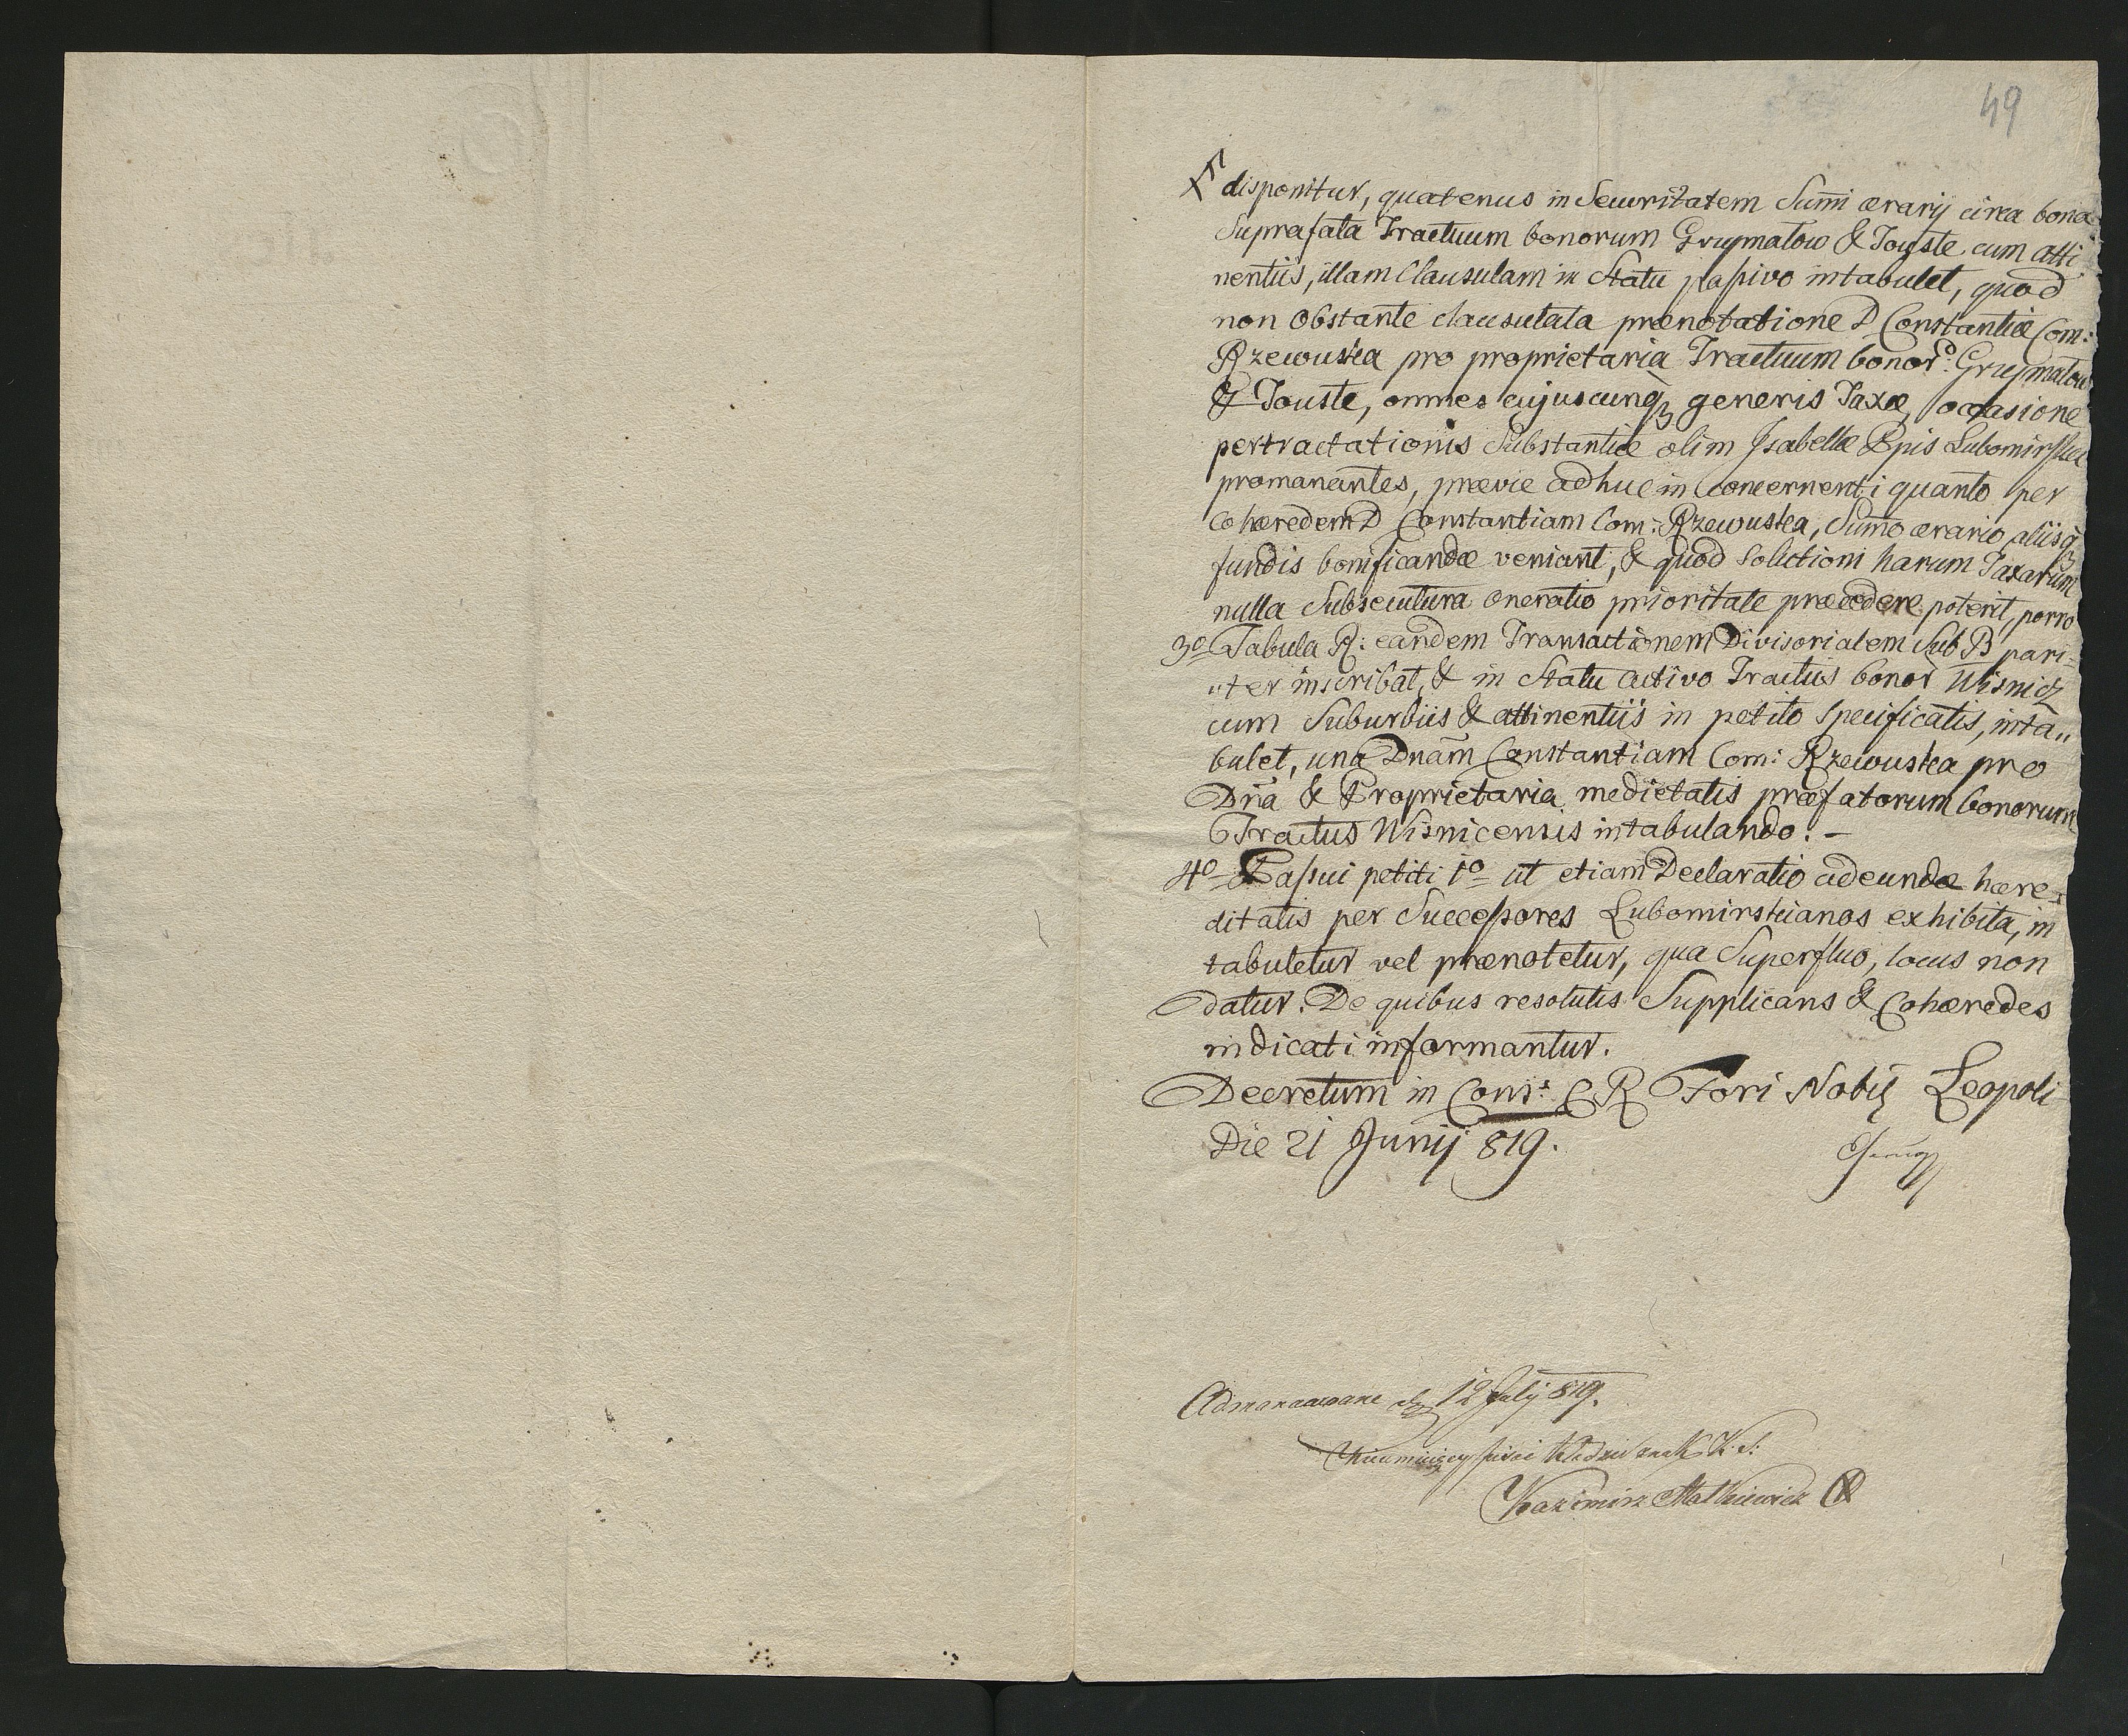 49
disponitur, quatenus in Securitatem Sumi ærarij circa bona
Suprafata Tractuum bonorum Grzymałow & Touste cum atti
nentiis, illam Clausulam in Statu passivo intabulet, quod
non Obstante clausulata prænotatione D Constantiæ Com:
Rzewuska pro proprietaria Tractuum bonor. Grzymałow
& Touste, omnes cujuscunq generis Taxæ, occasione
pertractationis Substantiæ olim Isabellæ Ppis Lubomirska
promanantes, prævie adhuc in concernenti quanto per
Cohæredem D Constantiam Com: Rzewuska, Sumo ærario aliisq
fundis bonificandæ veniant, & quod Solutioni harum Taxarum
nulla Subsecutura oneratio prioritate præcedere poterit, porro
3o Tabula R: eandem Transactionem Divisorialem Sub B pari-
"ter inscribat, & in Statu activo Tractus bonor Wisnicz
cum Suburbiis & attinentiis in petito specificatis, inta"
bulet, una Dnam Constantiam Com: Rzewuska pro
Dna & Proprietaria medietatis præfatorum bonorum
Tractus Wisnicensis intabulando. –
4o Passui petiti 1o ut etiam Declaratio adeundæ hære=
ditatis per Successores Lubomirskianos exhibita, in
tabuletur vel prænotetur, qua Superfluo, locus non
datur. De quibus resolutis Supplicans & Cohæredes
indicati informantur.
Decretum in Cons: CR Fori Nobil Leopoli
Die 21 Junij 819.
12 Julij 819.
Kazimirz Matkiewicz